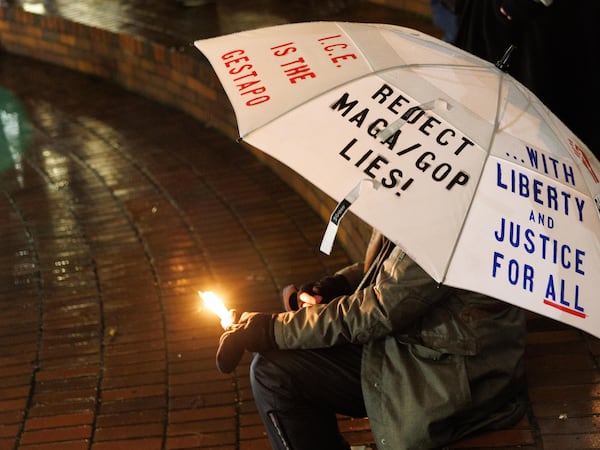 I.C.E.
IS THE
GESTAPO
REJECT
MAGA/GOP
LIES!
...WITH
LIBERTY
AND
JUSTICE
FOR ALL